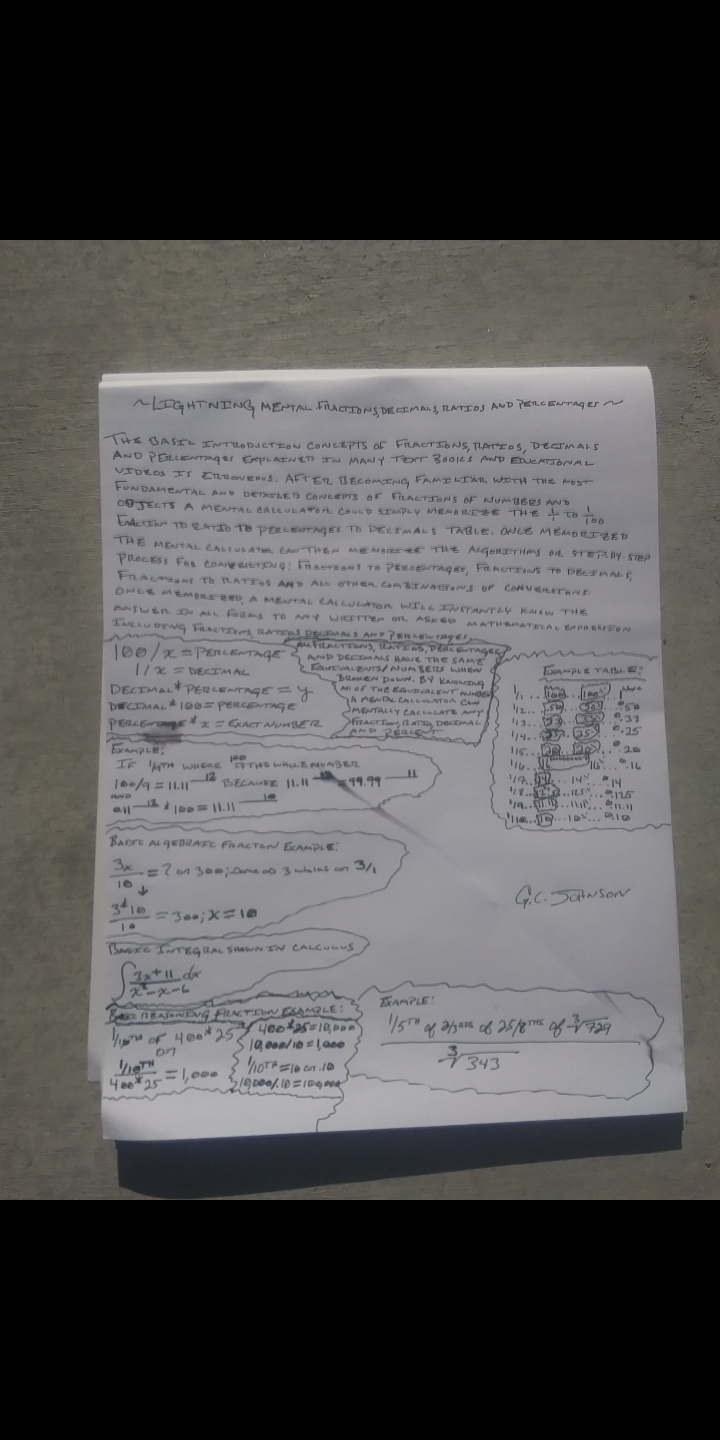 ~LIGHTNING MENTAL FRACTIONS, DECIMALS, RATIOS AND PERCENTAGES~
THE BASIC INTRODUCTION CONCEPTS OF FRACTIONS, RATIOS, DECIMALS
AND PERCENTAGES EXPLAINED IN MANY TEXT BOOKS AND EDUCATIONAL
VIDEOS IS ERRONEOUS. AFTER BECOMING FAMILIAR WITH THE MOST
FUNDAMENTAL AND DETAILED CONCEPTS OF FRACTIONS OF NUMBERS AND
OBJECTS A MENTAL CALCULATOR COULD SIMPLY MEMORIZE THE 1/1 TO 1/100
FRACTION TO RATIO TO PERCENTAGES TO DECIMALS TABLE. ONCE MEMORIZED
THE MENTAL CALCULATOR CAN THEN MEMORIZE THE ALGORITHMS OR STEP-BY-STEP
PROCESS FOR CONVERTING: FRACTIONS TO PERCENTAGES, FRACTIONS TO DECIMALS,
FRACTIONS TO RATIOS AND ALL OTHER COMBINATIONS OF CONVERSIONS.
ONCE MEMORIZED, A MENTAL CALCULATOR WILL INSTANTLY KNOW THE
ANSWER IN ALL FORMS TO ANY WRITTEN OR ASKED MATHEMATICAL EXPRESSION
INCLUDING FRACTIONS, RATIOS DECIMALS AND PERCENTAGES
100/x = PERCENTAGE
1/x = DECIMAL
DECIMAL * PERCENTAGE = y
DECIMAL * 100 = PERCENTAGE
PERCENTAGE * x = EXACT NUMBER
ALL FRACTIONS, RATIOS, PERCENTAGES
AND DECIMALS HAVE THE SAME
EQUIVALENTS/NUMBERS WHEN
BROKEN DOWN. BY KNOWING
ALL OF THE EQUIVALENT NUMBERS
A MENTAL CALCULATOR CAN
MENTALLY CALCULATE ANY
FRACTION, RATIO, DECIMAL
AND PERCENT
EXAMPLE TABLE:
1/1.. 100 100%
1/2.. 50 50% 0.50
1/3... 33 33% 0.33
1/4... 25 25% 0.25
1/5... 20 20% 0.20
1/6.. 16 16% 0.16
1/7.. 14 .. 14% .. 0.14
1/8.. 0.125
1/9.. 11.11
1/10.. 10 ... 10% ... 0.10
EXAMPLE:
IS 1/9TH WHERE 100 IS THE WHOLE NUMBER
100/9 = 11.11 BECAUSE 11.11 = 99.99
AND
* 100 = 11.11
BASIC ALGEBRAIC FRACTION EXAMPLE:
3x/10 = ? or 300; Same as 3 wholes or 3/1
3*10/10 = 300; X = 10
G.C. JOHNSON
BASIC INTEGRAL SHOWN IN CALCULUS
∫ 3x+11/x²-x-6 dx
BASIC REASONING FRACTION EXAMPLE:
1/10TH of 400*25
or
1/10TH/400*25 = 1,000
400*25=10,000
10,000/10=1,000
1/10TH = 10 or .10
10,000/.10=100,000
EXAMPLE:
1/5TH of 2/3RDS of 25/8THS of ∛729
∛343